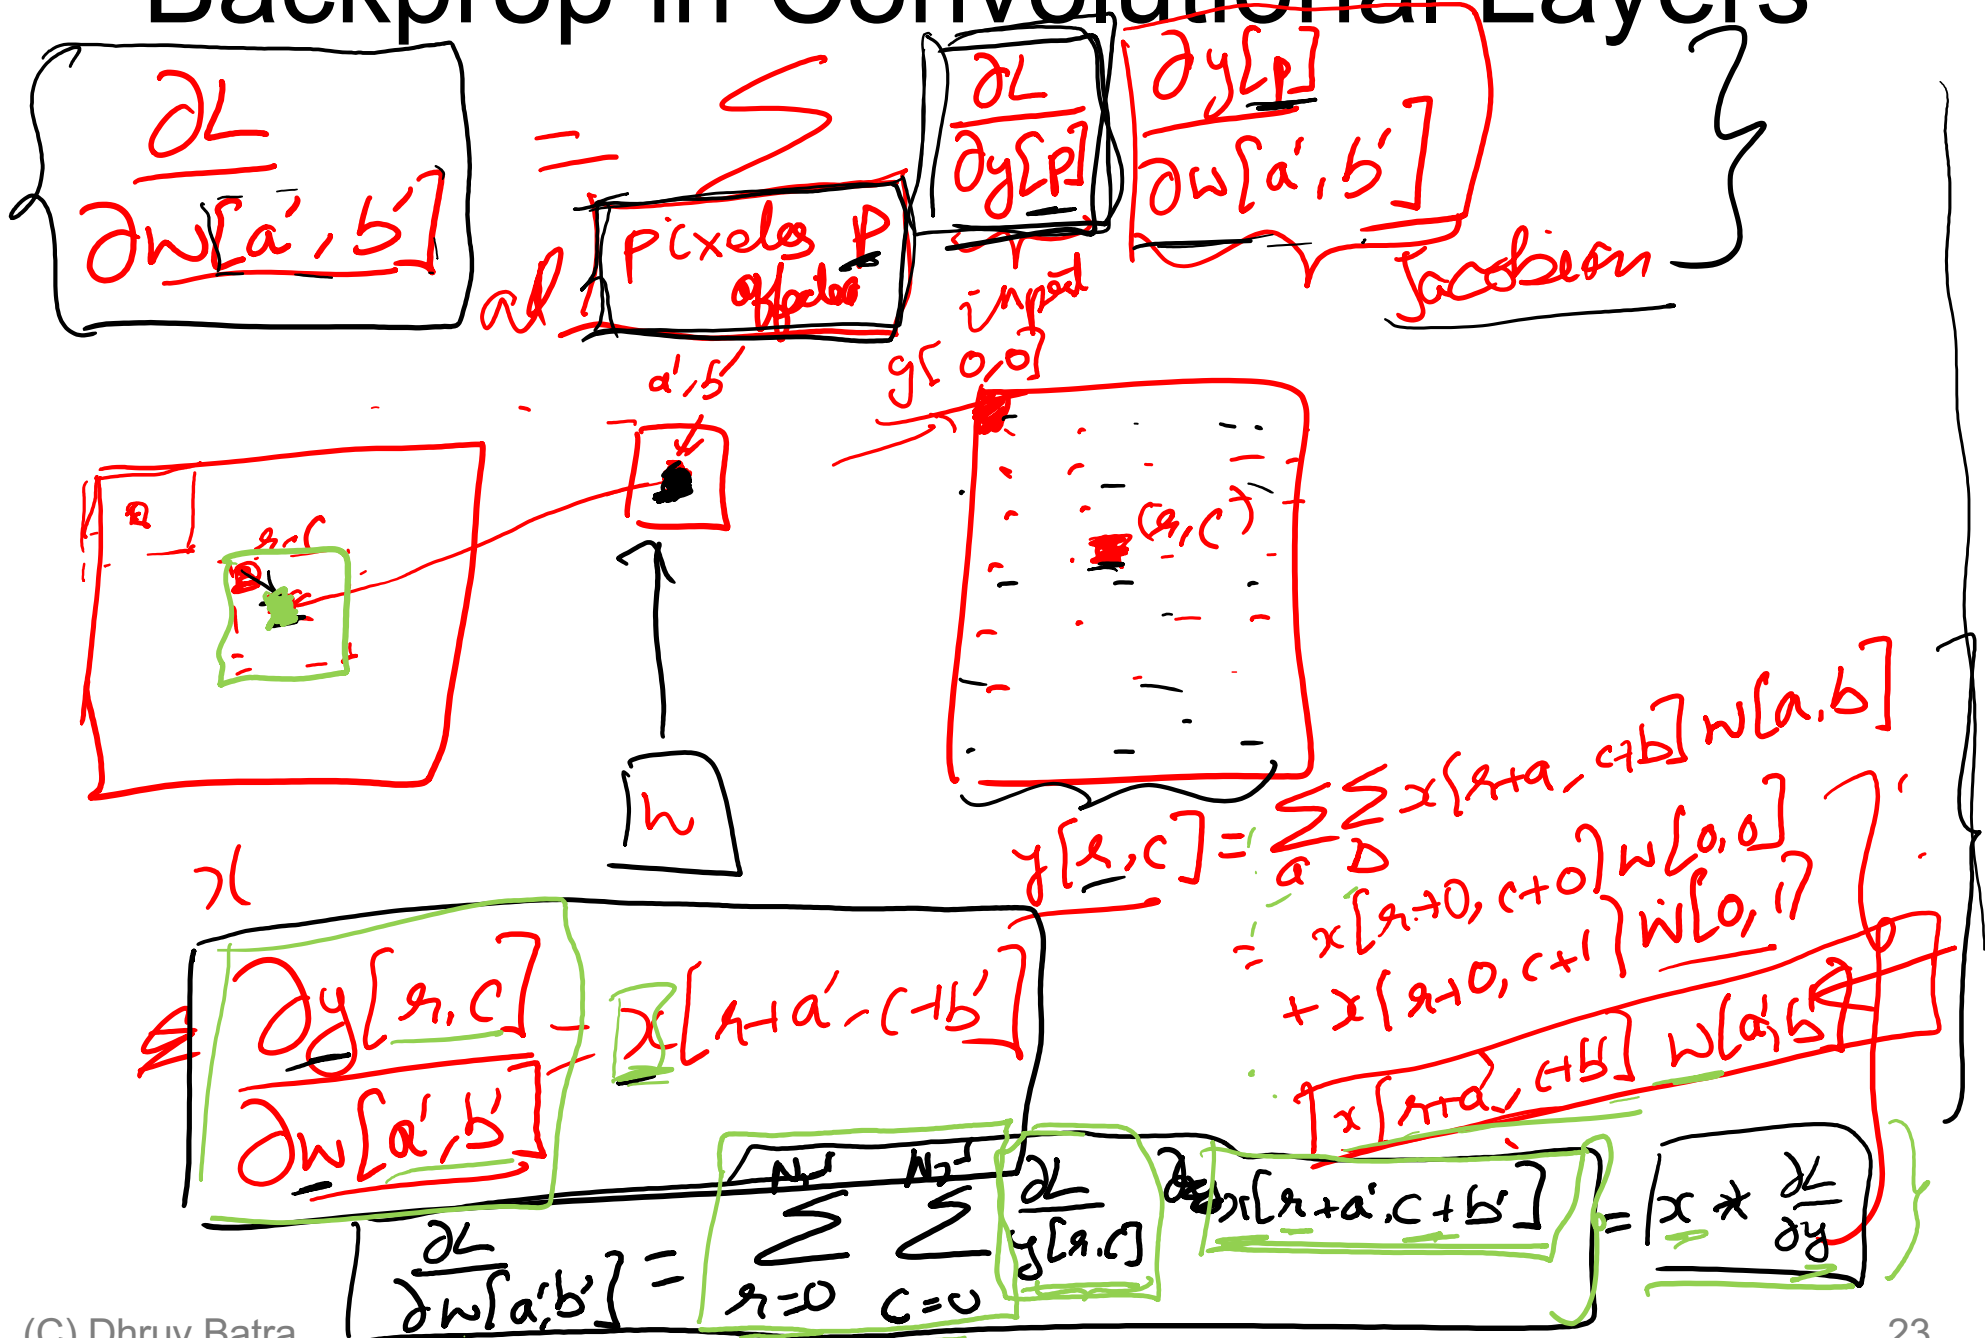 Backprop in Convolutional Layers
∂L / ∂w[a', b'] = Σ ∂L / ∂y[p] ∂y[p] / ∂w[a', b']
all pixels p
input
Jacobian
a', b'
y[0,0]
r, c
(r, c)
w
x
y[r, c] = Σ_a Σ_b x[r+a, c+b] w[a, b]
= x[r+0, c+0] w[0,0]
+ x[r+0, c+1] w[0,1]
x[r+a', c+b'] w[a', b']
∂y[r, c] / ∂w[a', b'] = x[r+a', c+b']
∂L / ∂w[a', b'] = Σ_{r=0}^{N₁-1} Σ_{c=0}^{N₂-1} ∂L / y[r,c] x[r+a', c+b'] = x * ∂L / ∂y
(C) Dhruv Batra
23